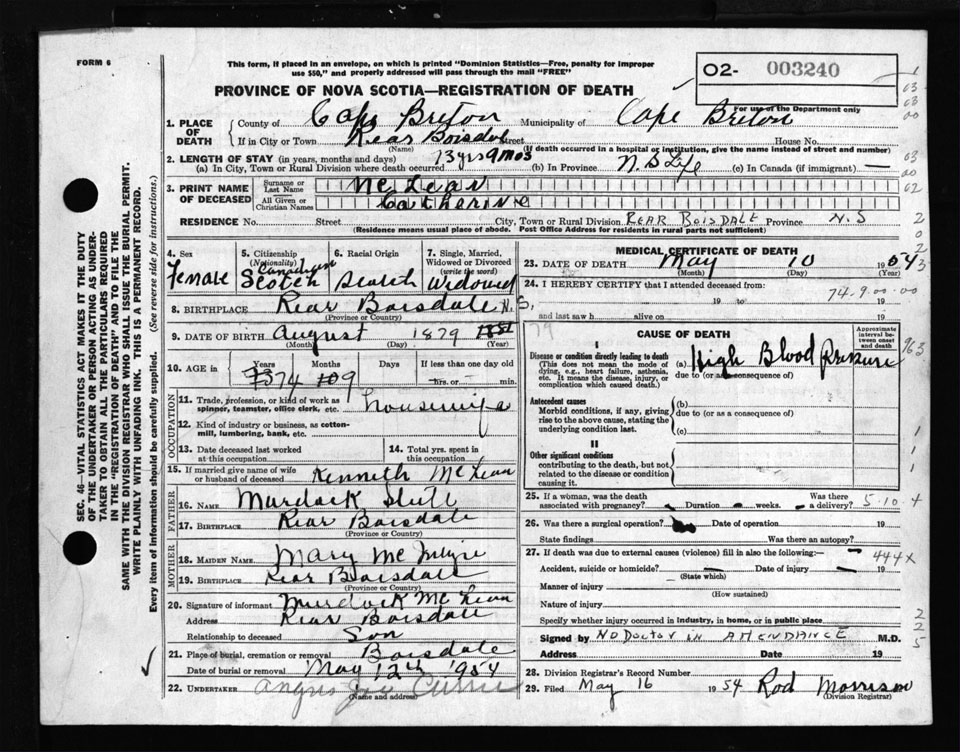 FORM 6
This form, if placed in an envelope, on which is printed "Dominion Statistics—Free, penalty for improper
use $50," and properly addressed will pass through the mail "FREE"
O2- 003240
For use of the Department only
PROVINCE OF NOVA SCOTIA—REGISTRATION OF DEATH
1. PLACE OF DEATH
County of Cape Breton Municipality of Cape Breton
If in City or Town Rear Boisdale Street House No.
(Name) (If death occurred in a hospital or institution, give the name instead of street and number)
2. LENGTH OF STAY (in years, months and days)
(a) In City, Town or Rural Division where death occurred 73 yrs 9 mos (b) In Province N.S Life (c) In Canada (if immigrant) —
3. PRINT NAME OF DECEASED
Surname or Last Name McLean
All Given or Christian Names Catherine
RESIDENCE No. Street City, Town or Rural Division REAR BOISDALE Province N.S
(Residence means usual place of abode. Post Office Address for residents in rural parts not sufficient)
4. Sex Female
5. Citizenship (Nationality) Canadian Scotch
6. Racial Origin Scotch
7. Single, Married, Widowed or Divorced (write the word) Widowed
8. BIRTHPLACE Rear Boisdale N.S.
(Province or Country)
9. DATE OF BIRTH August 1879
(Month) (Day) (Year)
10. AGE in Years 74 Months 9 Days If less than one day old hrs. or min.
OCCUPATION
11. Trade, profession, or kind of work as spinner, teamster, office clerk, etc. Housewife
12. Kind of industry or business, as cotton-mill, lumbering, bank, etc.
13. Date deceased last worked at this occupation
14. Total yrs. spent in this occupation
15. If married give name of wife or husband of deceased Kenneth McLean
FATHER
16. NAME Murdock
17. BIRTHPLACE Rear Boisdale
(Province or Country)
MOTHER
18. MAIDEN NAME Mary McIntyre
19. BIRTHPLACE Rear Boisdale
(Province or Country)
20. Signature of informant Murdock McLean
Address Rear Boisdale
Relationship to deceased Son
21. Place of burial, cremation or removal Boisdale
Date of burial or removal May 12th 1954
22. UNDERTAKER Angus Currie
(Name and address)
MEDICAL CERTIFICATE OF DEATH
23. DATE OF DEATH May 10 1954
(Month) (Day) (Year)
24. I HEREBY CERTIFY that I attended deceased from:
19 to 19
and last saw h alive on 19
74-9-00-00
79
CAUSE OF DEATH
Approximate interval between onset and death
I
Disease or condition directly leading to death
(This does not mean the mode of dying, e.g., heart failure, asthenia, etc. It means the disease, injury, or complication which caused death.)
(a) High Blood Pressure
due to (or as consequence of)
Antecedent causes
Morbid conditions, if any, giving rise to the above cause, stating the underlying condition last.
(b)
due to (or as a consequence of)
(c)
II
Other significant conditions
contributing to the death, but not related to the disease or condition causing it
25. If a woman, was the death associated with pregnancy? Duration weeks. Was there a delivery? 5-10-4
26. Was there a surgical operation? Date of operation 19
State findings Was there an autopsy?
27. If death was due to external causes (violence) fill in also the following:— 444X
Accident, suicide or homicide? — Date of injury — 19
(State which)
Manner of injury
(How sustained)
Nature of injury
Specify whether injury occurred in industry, in home, or in public place
Signed by NO DOCTOR IN ATTENDANCE M.D.
Address Date 19
28. Division Registrar's Record Number
29. Filed May 16 1954 Rod Morrison
(Division Registrar)
SEC. 46—VITAL STATISTICS ACT MAKES IT THE DUTY
OF THE UNDERTAKER OR PERSON ACTING AS UNDER-
TAKER TO OBTAIN ALL THE PARTICULARS REQUIRED
IN THE "REGISTRATION OF DEATH" AND TO FILE THE
SAME WITH THE DIVISION REGISTRAR WHO SHALL ISSUE THE BURIAL PERMIT.
WRITE PLAINLY WITH UNFADING INK. THIS IS A PERMANENT RECORD.
Every item of information should be carefully supplied. (See reverse side for instructions.)